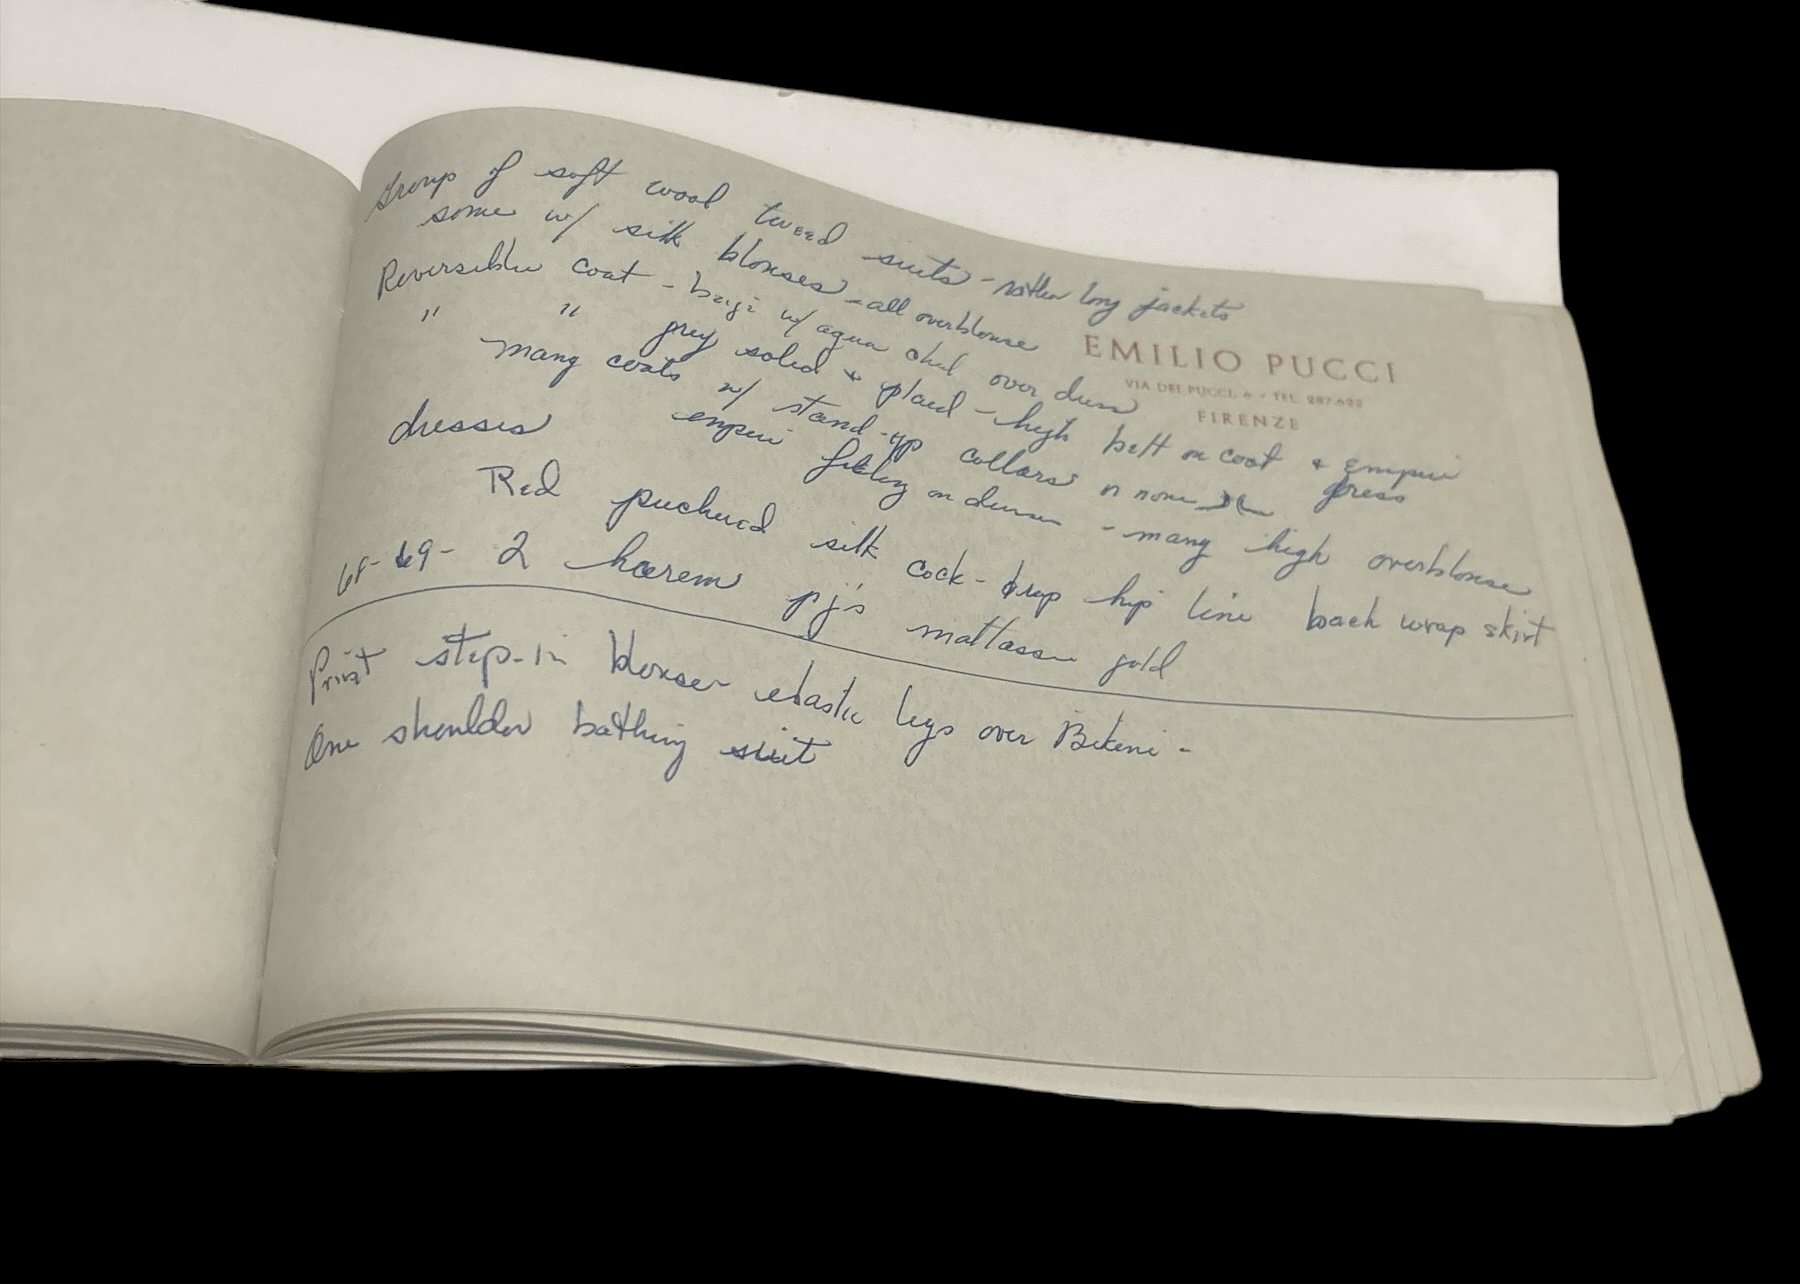 Group of soft wool tweed suits - rather long jackets
some w/ silk blouses - all overblouse
Reversible coat - beige w/ aqua over dress
" " grey solid + plaid - high belt on coat + empire dress
many coats w/ stand-up collars or none
dresses empire feeling on dresses - many high overblouse
Red silk hip line back wrap skirt
68-69- 2 harem pj's gold
Print step-in blouse elastic legs over Bikini -
One shoulder bathing suit
EMILIO PUCCI
VIA DEI PUCCI, 6 - TEL. 287.622
FIRENZE